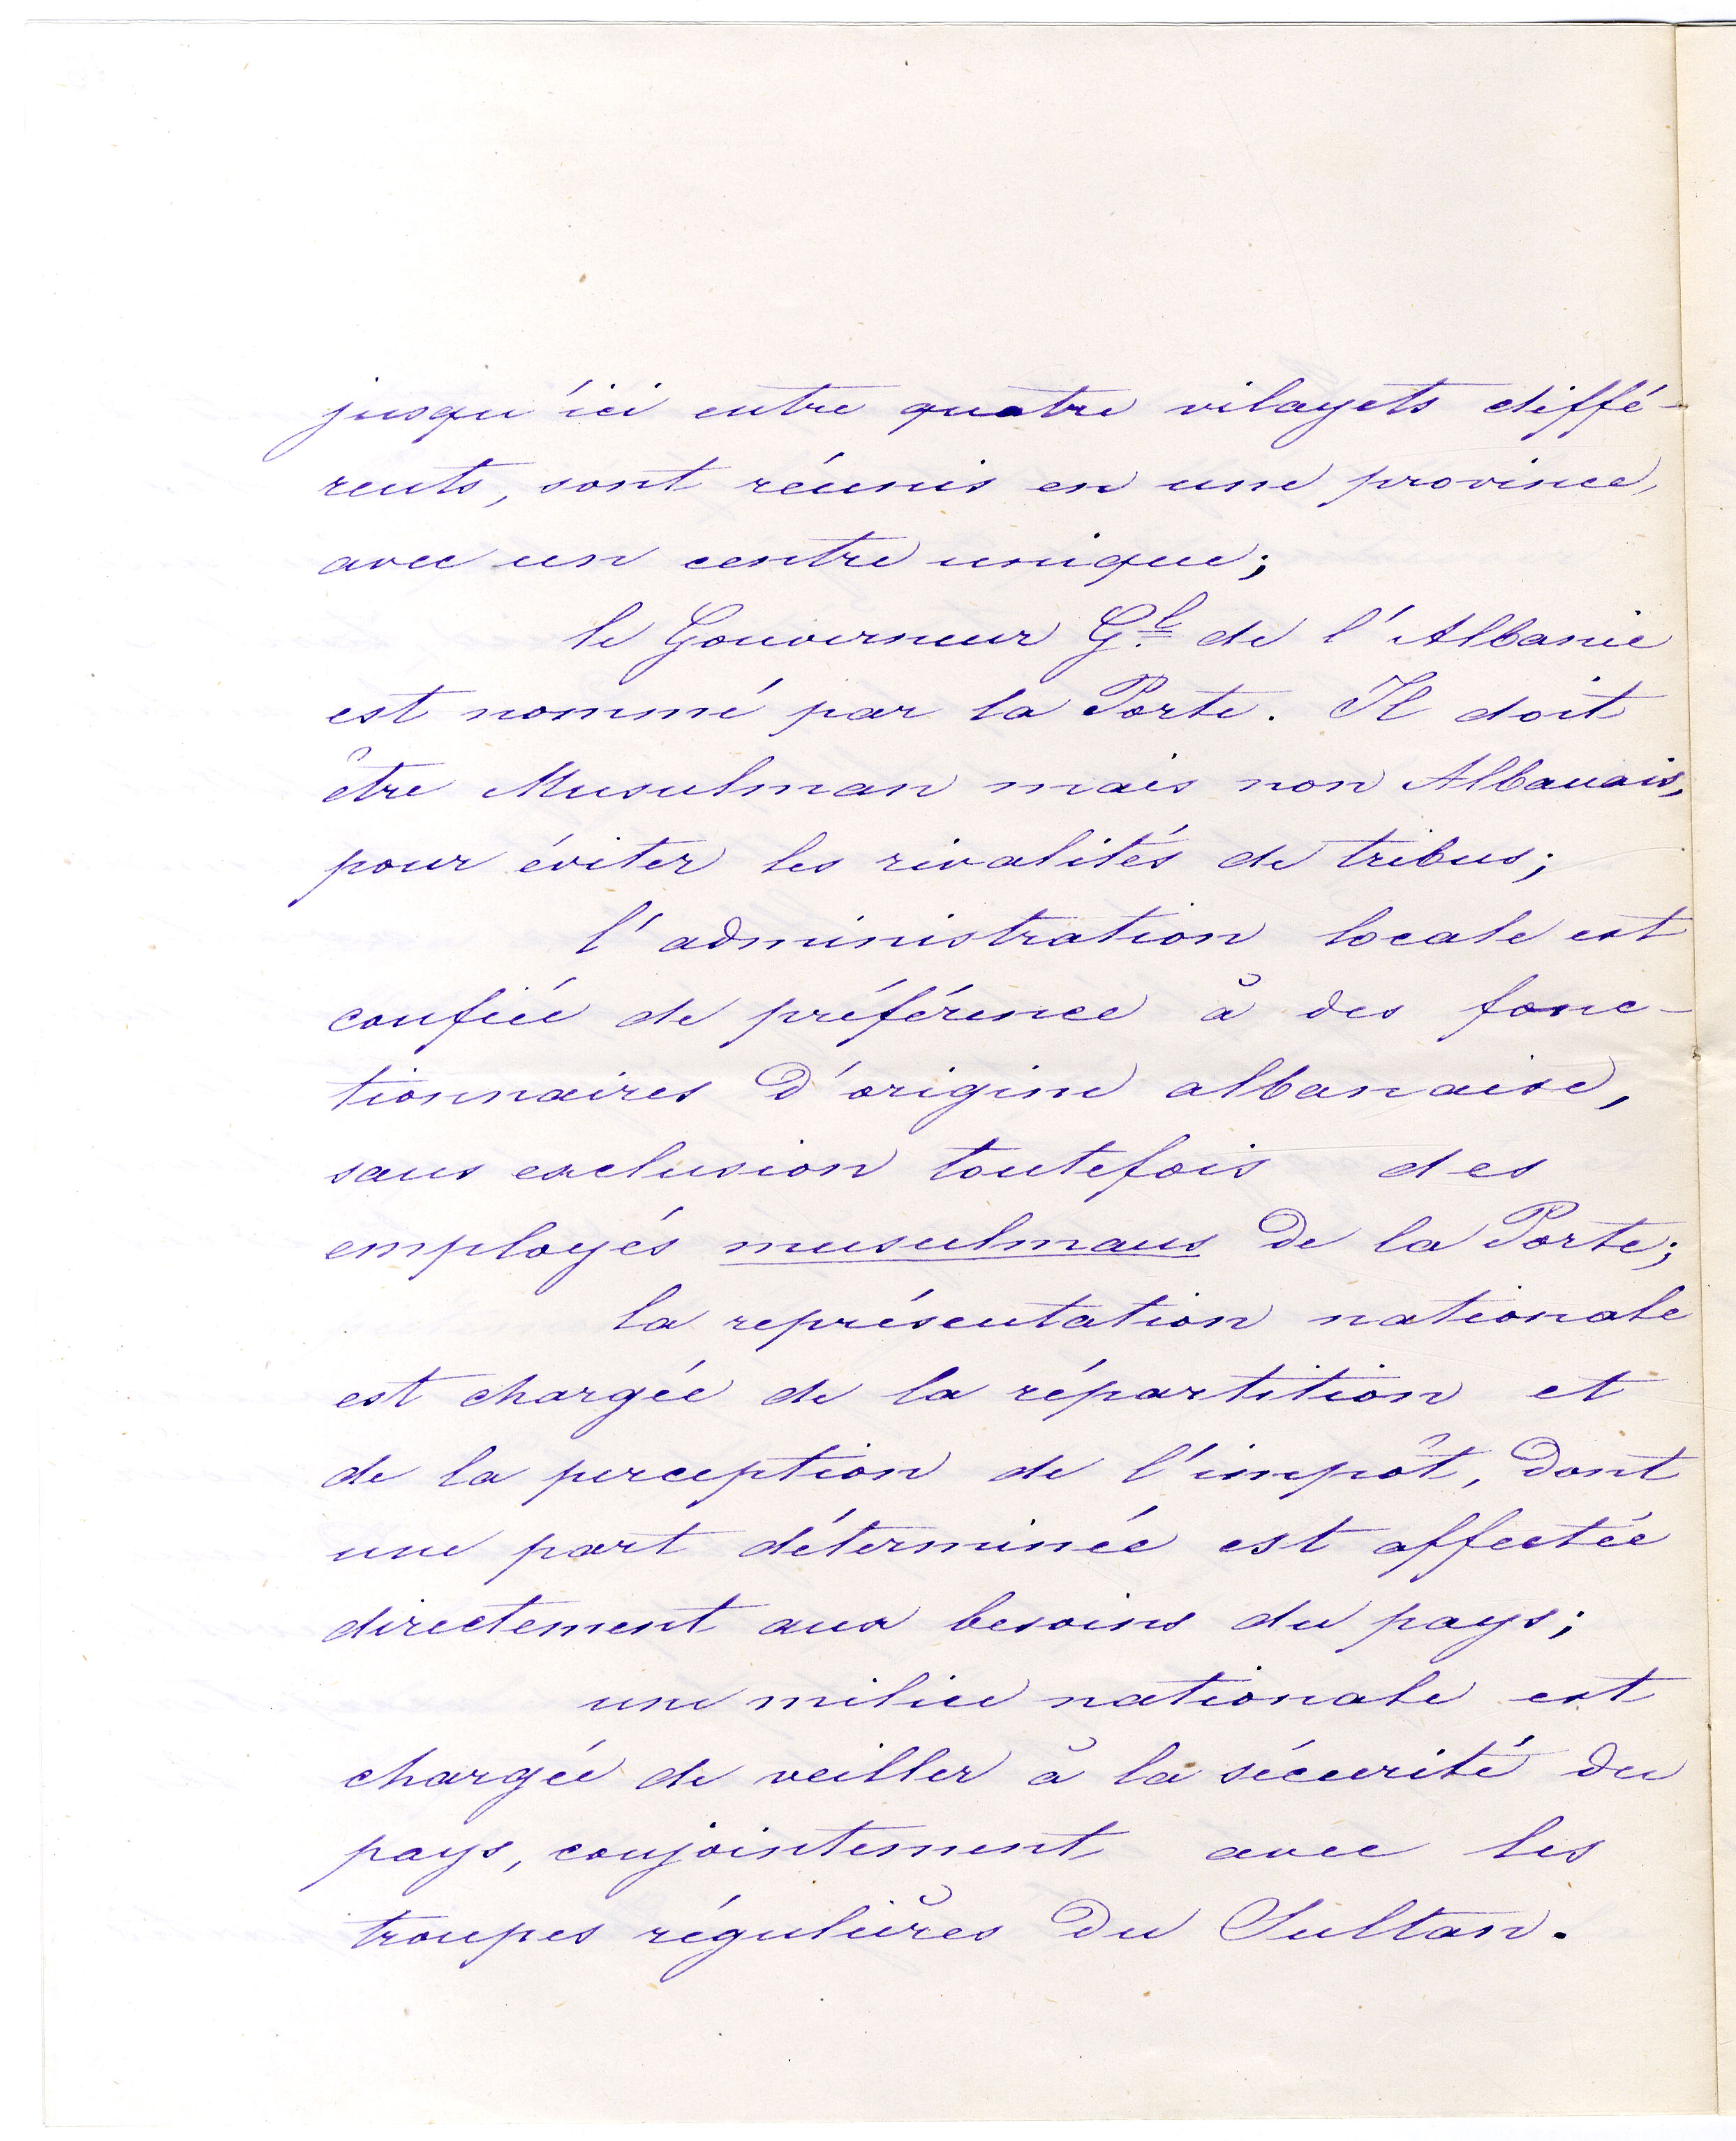 jusqu'ici entre quatre vilayets diffé-
rents, sont réunis en une province,
avec un centre unique;
le Gouverneur Gl. de l'Albanie
est nommé par la Porte. Il doit
être Musulman mais non Albanais,
pour éviter les rivalités de tribus;
l'administration locale est
confiée de préférence à des fonc-
tionnaires d'origine albanaise,
sans exclusion toutefois des
employés musulmans de la Porte;
la représentation nationale
est chargée de la répartition et
de la perception de l'impôt, dont
une part déterminée est affectée
directement aux besoins du pays;
une milice nationale est
chargée de veiller à la sécurité du
pays, conjointement avec les
troupes régulières du Sultan.